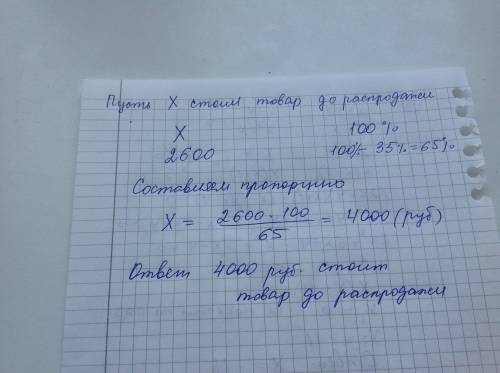 Пусть X стоит товар до распродажи
X 100%
2600 100% - 35% = 65%
Составляем пропорцию
X = 2600 · 100 / 65 = 4000 (руб)
Ответ 4000 руб. стоит
товар до распродажи